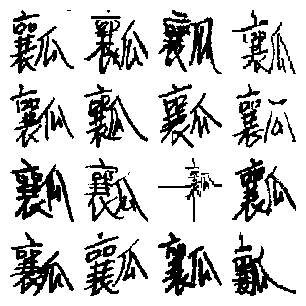 瓤瓤瓤瓤
瓤瓤瓤瓤
瓤瓤瓤瓤
瓤瓤瓤瓤